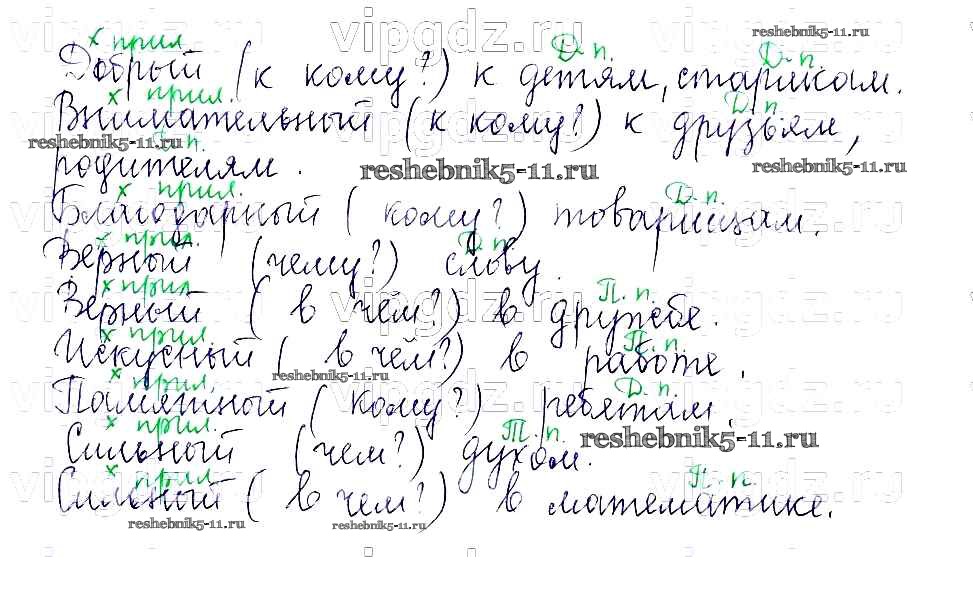 х прил. Д. п. Д. п.
Добрый (к кому?) к детям, старикам.
х прил. Д. п.
Внимательный (к кому?) к друзьям,
Д. п.
родителям.
х прил. Д. п.
Благодарный (кому?) товарищам.
х прил. Д. п.
Верный (чему?) слову.
х прил. П. п.
Верный (в чём?) в дружбе.
х прил. П. п.
Искусный (в чём?) в работе.
х прил. Д. п.
Памятный (кому?) ребятам.
х прил. Т. п.
Сильный (чем?) духом.
х прил. П. п.
Сильный (в чем?) в математике.
vipgdz.ru
reshebnik5-11.ru
reshebnik5-11.ru
reshebnik5-11.ru
reshebnik5-11.ru
reshebnik5-11.ru
reshebnik5-11.ru
reshebnik5-11.ru
reshebnik5-11.ru